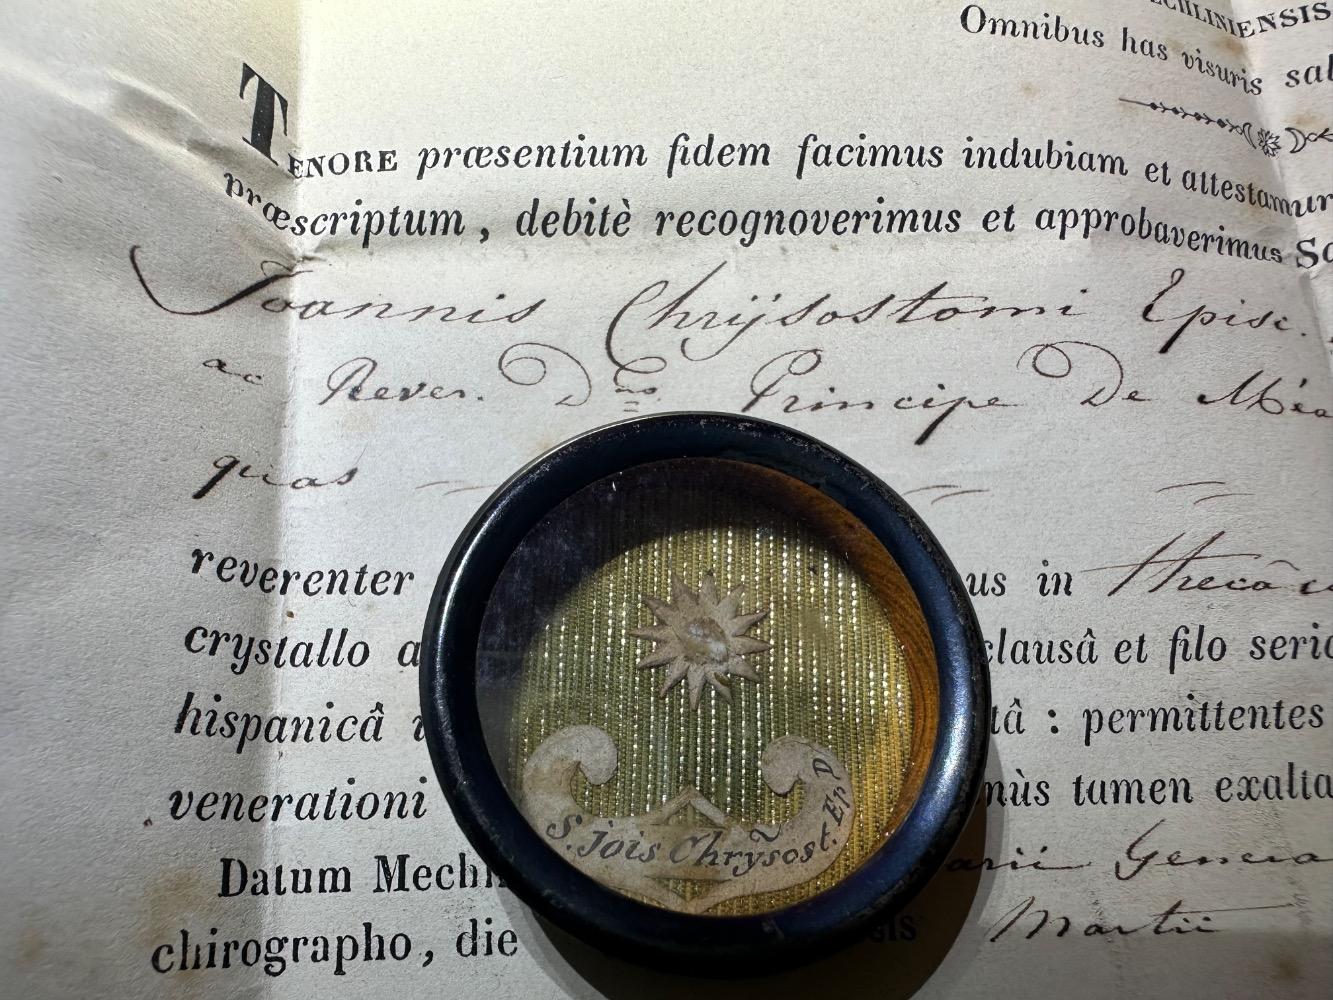 CHLINIENSIS
Omnibus has visuris sal
TENORE præsentium fidem facimus indubiam et attestamur
præscriptum, debitè recognoverimus et approbaverimus Sa
Joannis Chrÿsostomi Episc.
ac Rever. Dno Principe De Méa
quas
reverenter us in thecâ
crystallo a clausâ et filo seric
hispanicâ tâ : permittentes
venerationi nùs tamen exalta
Datum Mechl arii Genera
chirografho, die sis Martii
S. Jois Chrÿsost. Ep D